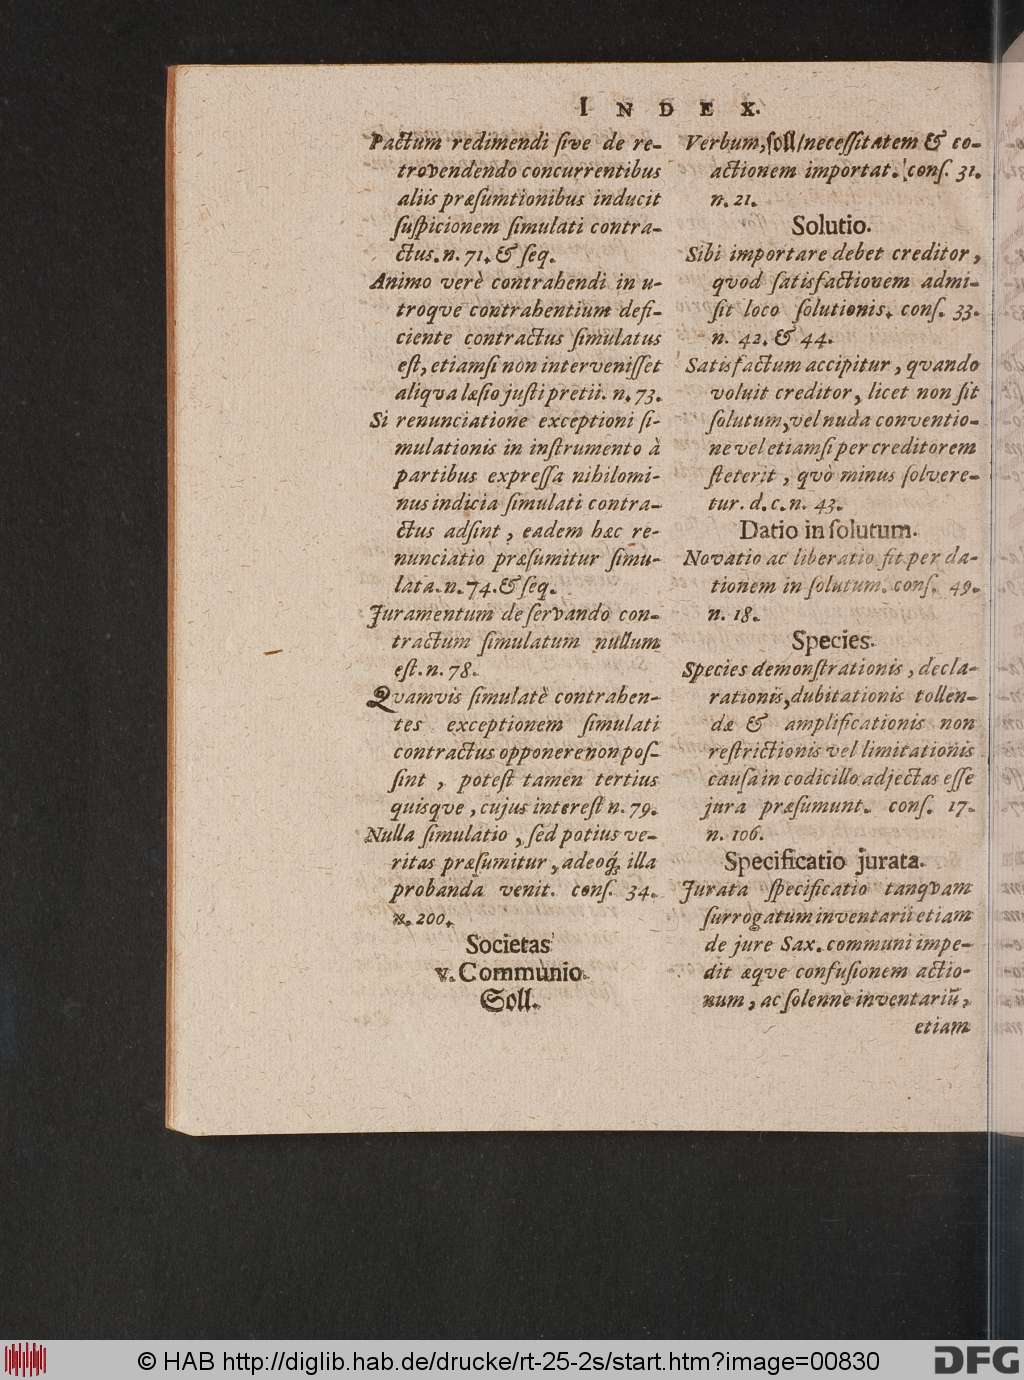 INDEX.
Pactum redimendi ſive de re-
trovendendo concurrentibus
aliis præſumtionibus inducit
ſuſpicionem ſimulati contra-
ctus. n. 71. & ſeq.
Animo verè contrahendi in u-
troqve contrahentium defi-
ciente contractus ſimulatus
eſt, etiamſi non interveniſſet
aliqva læſio juſti pretii. n. 73.
Si renunciatione exceptioni ſi-
mulationis in inſtrumento à
partibus expreſſa nihilomi-
nus indicia ſimulati contra-
ctus adſint, eadem hæc re-
nunciatio præſumitur ſimu-
lata. n. 74. & ſeq.
Juramentum de ſervando con-
tractum ſimulatum nullum
eſt. n. 78.
Qvamvis ſimulatè contrahen-
tes exceptionem ſimulati
contractus opponere non poſ-
ſint, poteſt tamen tertius
quisqve, cujus intereſt n. 79.
Nulla ſimulatio, ſed potius ve-
ritas præſumitur, adeoq́; illa
probanda venit. conſ. 34.
n. 200.
Societas
v. Communio.
Soll.
Verbum, ſoll/ neceſſitatem & co-
actionem importat. conſ. 31.
n. 21.
Solutio.
Sibi importare debet creditor,
qvod ſatisfactionem admi-
ſit loco ſolutionis. conſ. 33.
n. 42. & 44.
Satisfactum accipitur, qvando
voluit creditor, licet non ſit
ſolutum, vel nuda conventio-
ne vel etiamſi per creditorem
ſteterit, qvò minus ſolvere-
tur. d. c. n. 43.
Datio in ſolutum.
Novatio ac liberatio fit per da-
tionem in ſolutum. conſ. 49.
n. 18.
Species.
Species demonſtrationis, decla-
rationis, dubitationis tollen-
dæ & amplificationis non
reſtrictionis vel limitationis
cauſa in codicillo adjectas eſſe
jura præſumunt. conſ. 17.
n. 106.
Specificatio jurata.
Jurata ſpecificatio tanqvam
ſurrogatum inventarii etiam
de jure Sax. communi impe-
dit æqve confuſionem actio-
num, ac ſolenne inventariũ,
etiam
© HAB http://diglib.hab.de/drucke/rt-25-2s/start.htm?image=00830
DFG